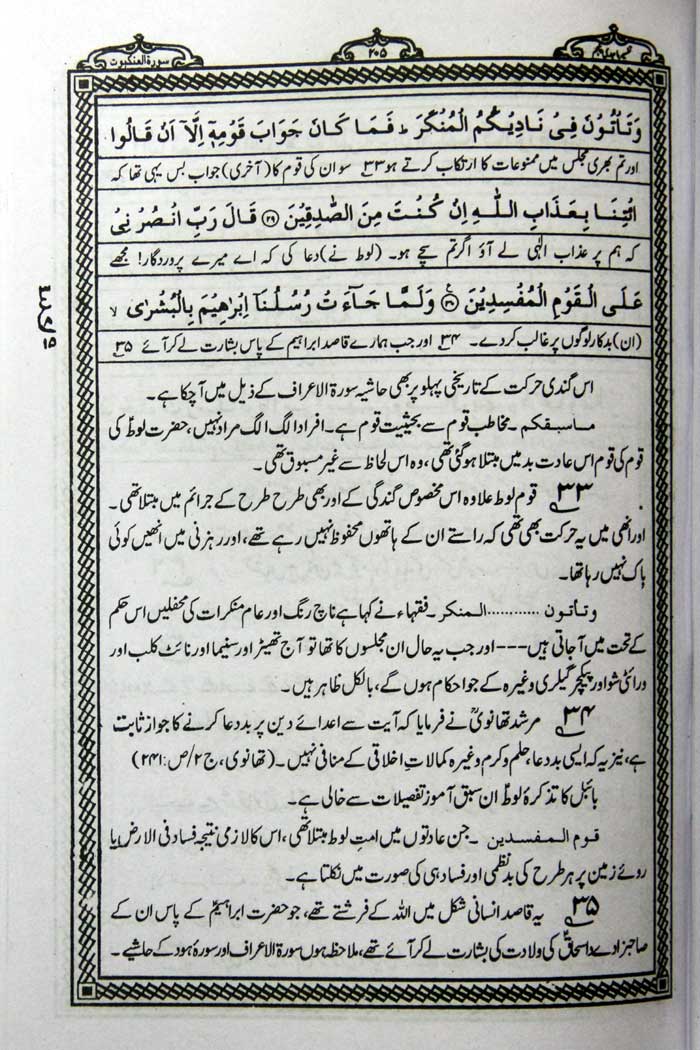 سورۃ العنکبوت
۲۰۵
وَتَأْتُوْنَ فِيْ نَادِيْكُمُ الْمُنْكَرَ ؕ فَمَا كَانَ جَوَابَ قَوْمِهٖٓ اِلَّآ اَنْ قَالُوا
اور تم بھری مجلس میں ممنوعات کا ارتکاب کرتے ہو ۳۳ سو ان کی قوم کا (آخری) جواب بس یہی تھا کہ
ائْتِنَا بِعَذَابِ اللّٰهِ اِنْ كُنْتَ مِنَ الصّٰدِقِيْنَ ۝۲۹ قَالَ رَبِّ انْصُرْنِيْ
کہ ہم پر عذاب الٰہی لے آؤ اگر تم سچے ہو۔ (لوط نے) دعا کی کہ اے میرے پروردگار! مجھے
عَلَى الْقَوْمِ الْمُفْسِدِيْنَ ۝۳۰ وَلَمَّا جَآءَتْ رُسُلُنَآ اِبْرٰهِيْمَ بِالْبُشْرٰى ۙ
(ان) بدکار لوگوں پر غالب کر دے۔ ۳۴ اور جب ہمارے قاصد ابراہیم کے پاس بشارت لے کر آئے ۳۵
اس گندی حرکت کے تاریخی پہلو پر بھی حاشیہ سورۃ الاعراف کے ذیل میں آ چکا ہے۔
ماسبقکم ۔ مخاطب قوم سے بحیثیت قوم ہے۔ افراد الگ الگ مراد نہیں، حضرت لوطؑ کی
قوم کی قوم اس عادت بد میں مبتلا ہو گئی تھی، وہ اس لحاظ سے غیر مسبوق تھی۔
۳۳ قوم لوط علاوہ اس مخصوص گندگی کے اور بھی طرح طرح کے جرائم میں مبتلا تھی۔
اور انھی میں یہ حرکت بھی تھی کہ راستے ان کے ہاتھوں محفوظ نہیں رہے تھے، اور رہزنی میں انھیں کوئی
باک نہیں رہا تھا۔
وتأتون ............ المنکر ۔ فقہاء نے کہا ہے ناچ رنگ اور عام منکرات کی محفلیں اس حکم
کے تحت میں آ جاتی ہیں --- اور جب یہ حال ان مجلسوں کا تھا تو آج تھیٹر اور سنیما اور نائٹ کلب اور
ورائٹی شو اور پکچر گیلری وغیرہ کے جو احکام ہوں گے، بالکل ظاہر ہیں۔
۳۴ مرشد تھانویؒ نے فرمایا کہ آیت سے اعدائے دین پر بد دعا کرنے کا جواز ثابت
ہے، نیز یہ کہ ایسی بد دعا، حلم و کرم وغیرہ کمالات اخلاقی کے منافی نہیں۔ (تھانوی، ج ۲/ص: ۲۴۱)
بائبل کا تذکرۂ لوطؑ ان سبق آموز تفصیلات سے خالی ہے۔
قوم المفسدین ۔ جن عادتوں میں امت لوط مبتلا تھی، اس کا لازمی نتیجہ فساد فی الارض یا
روئے زمین پر ہر طرح کی بد نظمی اور فساد ہی کی صورت میں نکلتا ہے۔
۳۵ یہ قاصد انسانی شکل میں اللہ کے فرشتے تھے، جو حضرت ابراہیمؑ کے پاس ان کے
صاحبزادے اسحاقؑ کی ولادت کی بشارت لے کر آئے تھے، ملاحظہ ہوں سورۃ الاعراف اور سورۂ ہود کے حاشیے۔